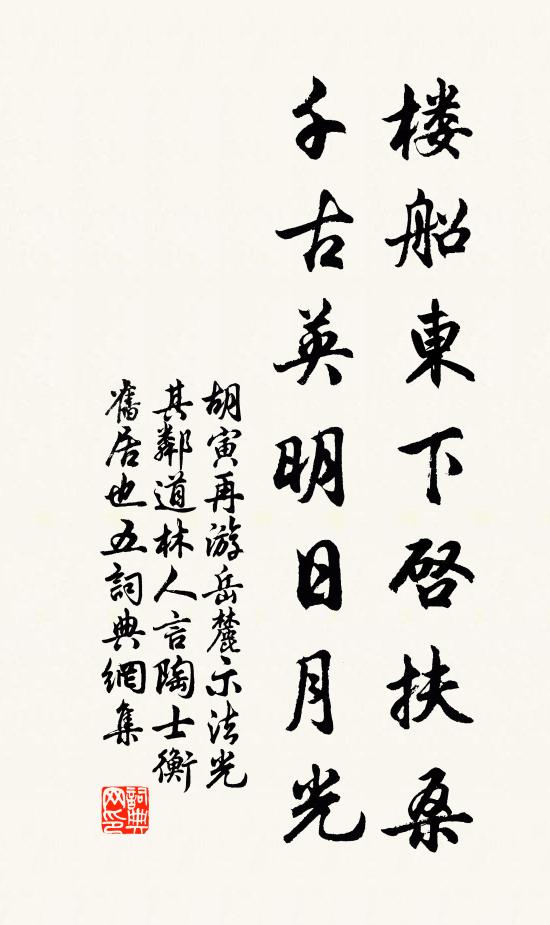 楼船東下啓扶桑
千古英明日月光
胡寅再游岳麓示法光
其鄰道林人言陶士衡
舊居也五詞典網集
詞典网印